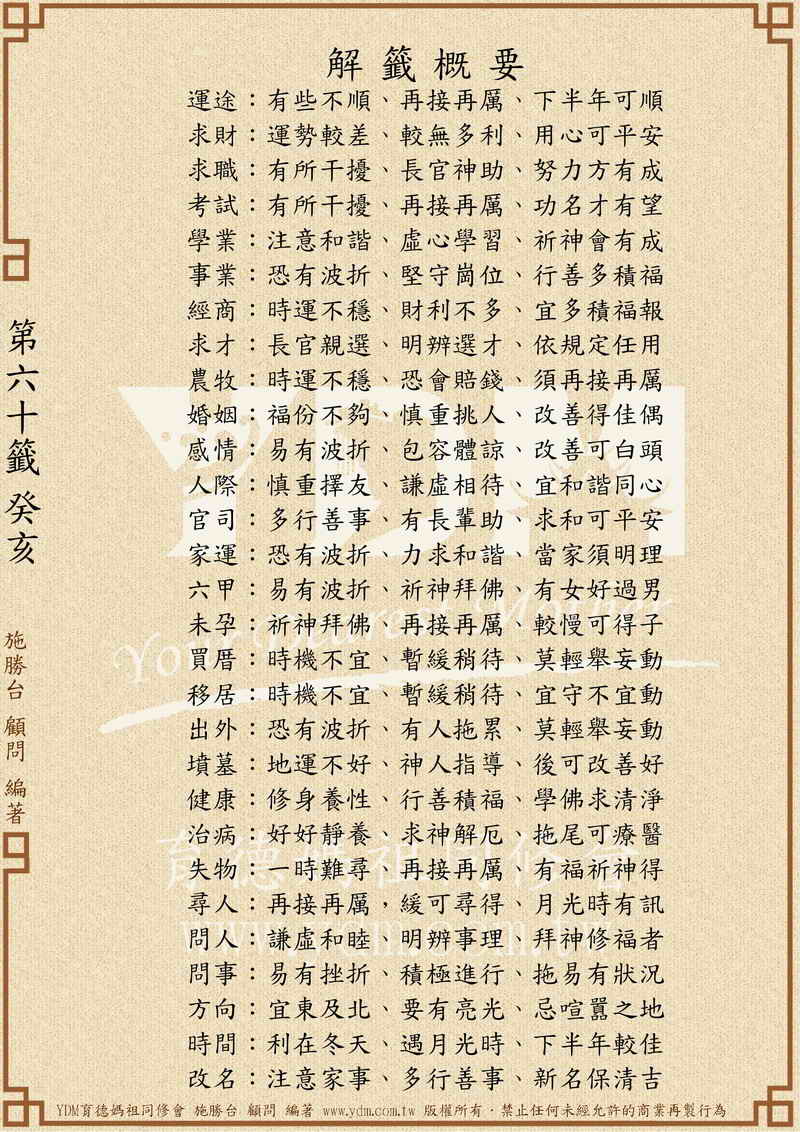 解籤概要
運途：有些不順、再接再厲、下半年可順
求財：運勢較差、較無多利、用心可平安
求職：有所干擾、長官神助、努力方有成
考試：有所干擾、再接再厲、功名才有望
學業：注意和諧、虛心學習、祈神會有成
事業：恐有波折、堅守崗位、行善多積福
經商：時運不穩、財利不多、宜多積福報
求才：長官親選、明辨選才、依規定任用
農牧：時運不穩、恐會賠錢、須再接再厲
婚姻：福份不夠、慎重挑人、改善得佳偶
感情：易有波折、包容體諒、改善可白頭
人際：慎重擇友、謙虛相待、宜和諧同心
官司：多行善事、有長輩助、求和可平安
家運：恐有波折、力求和諧、當家須明理
六甲：易有波折、祈神拜佛、有女好過男
未孕：祈神拜佛、再接再厲、較慢可得子
買厝：時機不宜、暫緩稍待、莫輕舉妄動
移居：時機不宜、暫緩稍待、宜守不宜動
出外：恐有波折、有人拖累、莫輕舉妄動
墳墓：地運不好、神人指導、後可改善好
健康：修身養性、行善積福、學佛求清淨
治病：好好靜養、求神解厄、拖尾可療醫
失物：一時難尋、再接再厲、有福祈神得
尋人：再接再厲，緩可尋得、月光時有訊
問人：謙虛和睦、明辨事理、拜神修福者
問事：易有挫折、積極進行、拖易有狀況
方向：宜東及北、要有亮光、忌喧囂之地
時間：利在冬天、遇月光時、下半年較佳
改名：注意家事、多行善事、新名保清吉
第六十籤 癸亥
施勝台 顧問 編著
YDM
Your Dearest Mother
育德媽祖同修會
www.ydm.com.tw
YDM育德媽祖同修會 施勝台 顧問 編著 www.ydm.com.tw 版權所有．禁止任何未經允許的商業再製行為